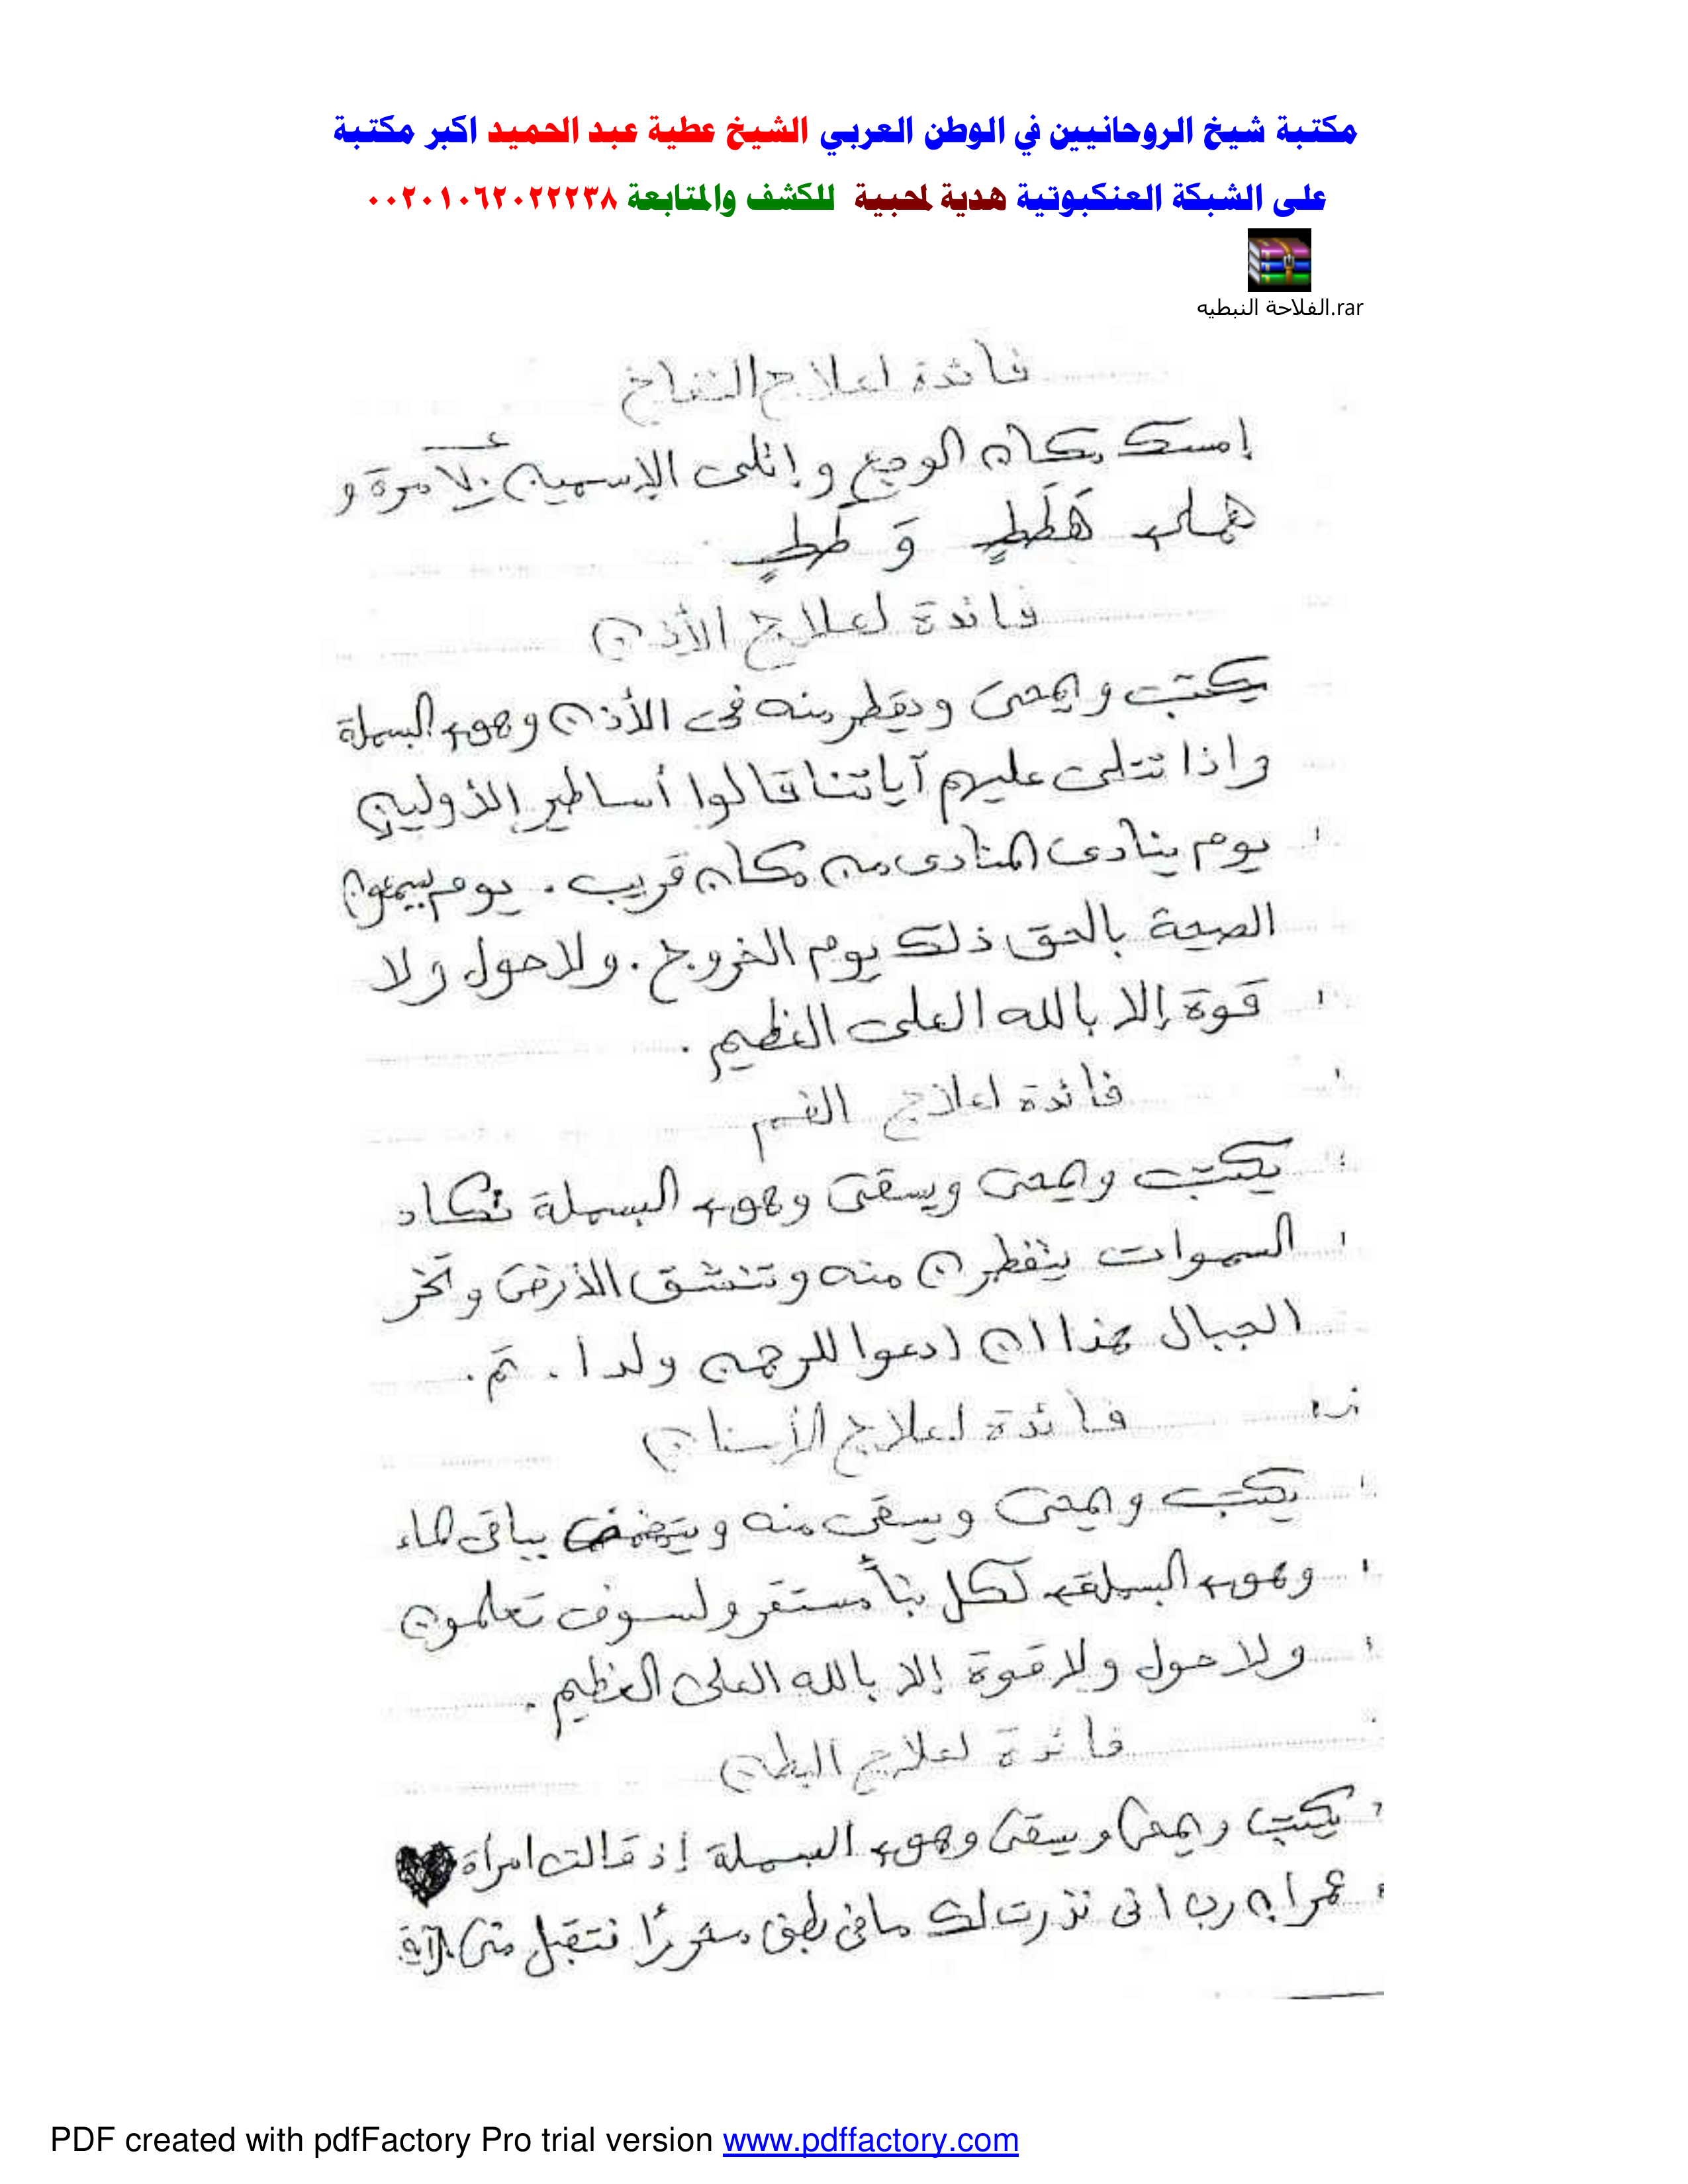 مكتبة شيخ الروحانيين في الوطن العربي الشيخ عطية عبد الحميد اكبر مكتبة
على الشبكة العنكبوتية هدية لمحبية للكشف والمتابعة ٠٠٢٠١٠٦٢٠٢٢٢٣٨
الفلاحة النبطيه.rar
فائدة لعلاج
إمسك مكان الوجع و إتلى الإسمين مرة و
هما هَطَطٍ وَ طَطٍ
فائدة لعلاج الأذن
يكتب ويمحى ويقطر منه فى الأذن وهو البسملة
وإذا تتلى عليهم آياتنا قالوا أساطير الأولين
يوم ينادى المنادى من مكان قريب . يوم يسمعون
الصيحة بالحق ذلك يوم الخروج . ولا حول ولا
قوة إلا بالله العلى العظيم .
فائدة لعلاج الفم
يكتب ويمحى ويسقى وهو البسملة تكاد
السموات يتفطرن منه وتنشق الأرض وتخر
الجبال هذا ان ادعوا للرحمن ولدا . تم .
فائدة لعلاج الأسنان
يكتب ويمحى ويسقى منه ويتمضمض بباقى الماء
وهو البسملة لكل نبأ مستقر ولسوف تعلمون
ولا حول ولا قوة إلا بالله العلى العظيم .
فائدة لعلاج البطن
يكتب ويمحى ويسقى وهو البسملة إذ قالت امرأة
عمران رب انى نذرت لك ما فى بطنى محررًا فتقبل منى الآية
PDF created with pdfFactory Pro trial version www.pdffactory.com